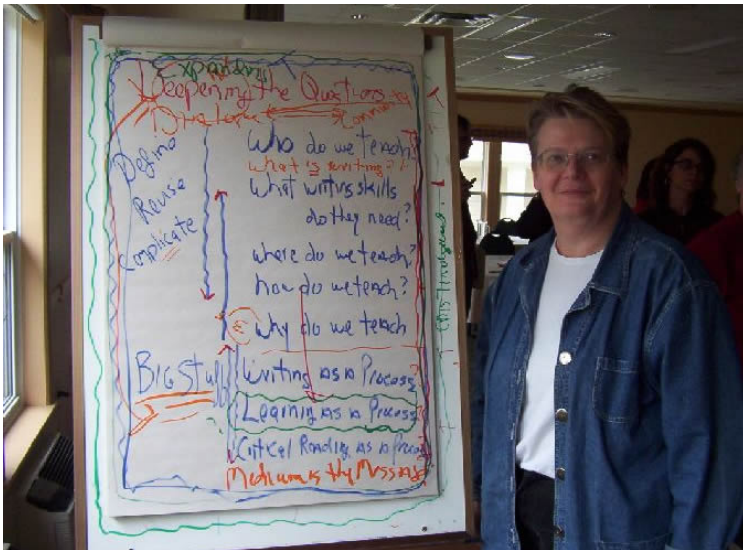 Expanding
Deepening the Questions
Dialogue
Community
Define
Revise
Complicate
Who do we teach?
What is writing?
What writing skills
do they need?
where do we teach?
how do we teach?
Why do we teach
Big Stuff
Writing as a Process?
Learning as a Process?
Critical Reading as a Process?
Medium is the Message